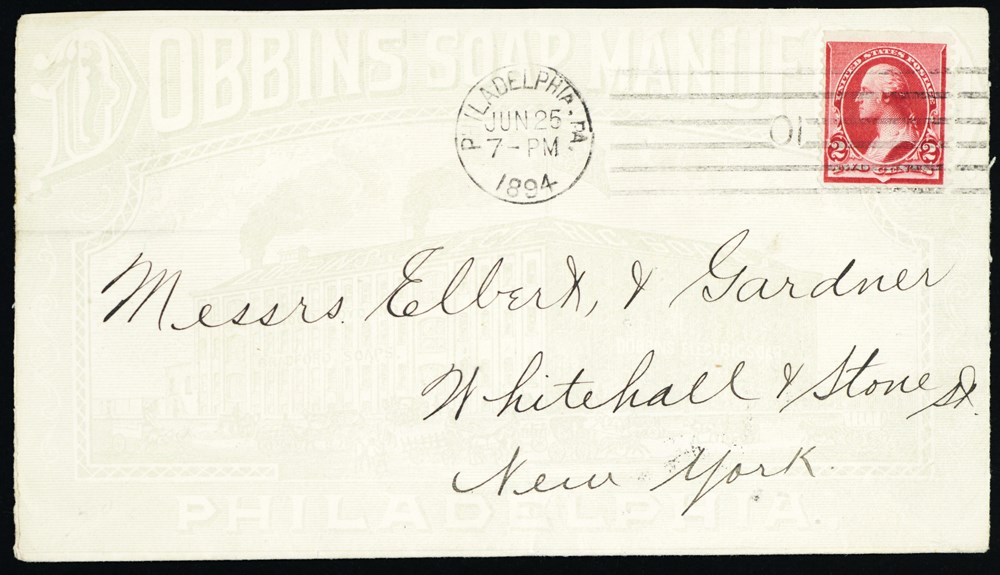 DOBBINS SOAP MANUF
PHILADELPHIA, PA.
JUN 25
7-PM
1894
UNITED STATES POSTAGE
2 2
Messrs. Elbert, & Gardner
Whitehall & Stone St.
New York.
PHILADELPHIA.